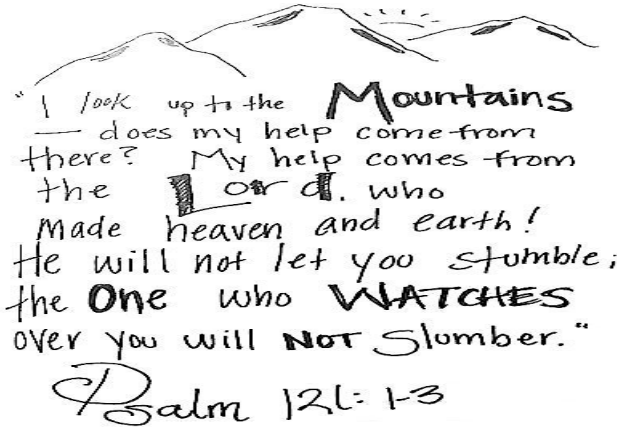 "I look up to the Mountains
— does my help come from
there? My help comes from
the Lord, who
made heaven and earth!
He will not let you stumble;
the One who WATCHES
over you will NOT Slumber."
Psalm 121: 1-3